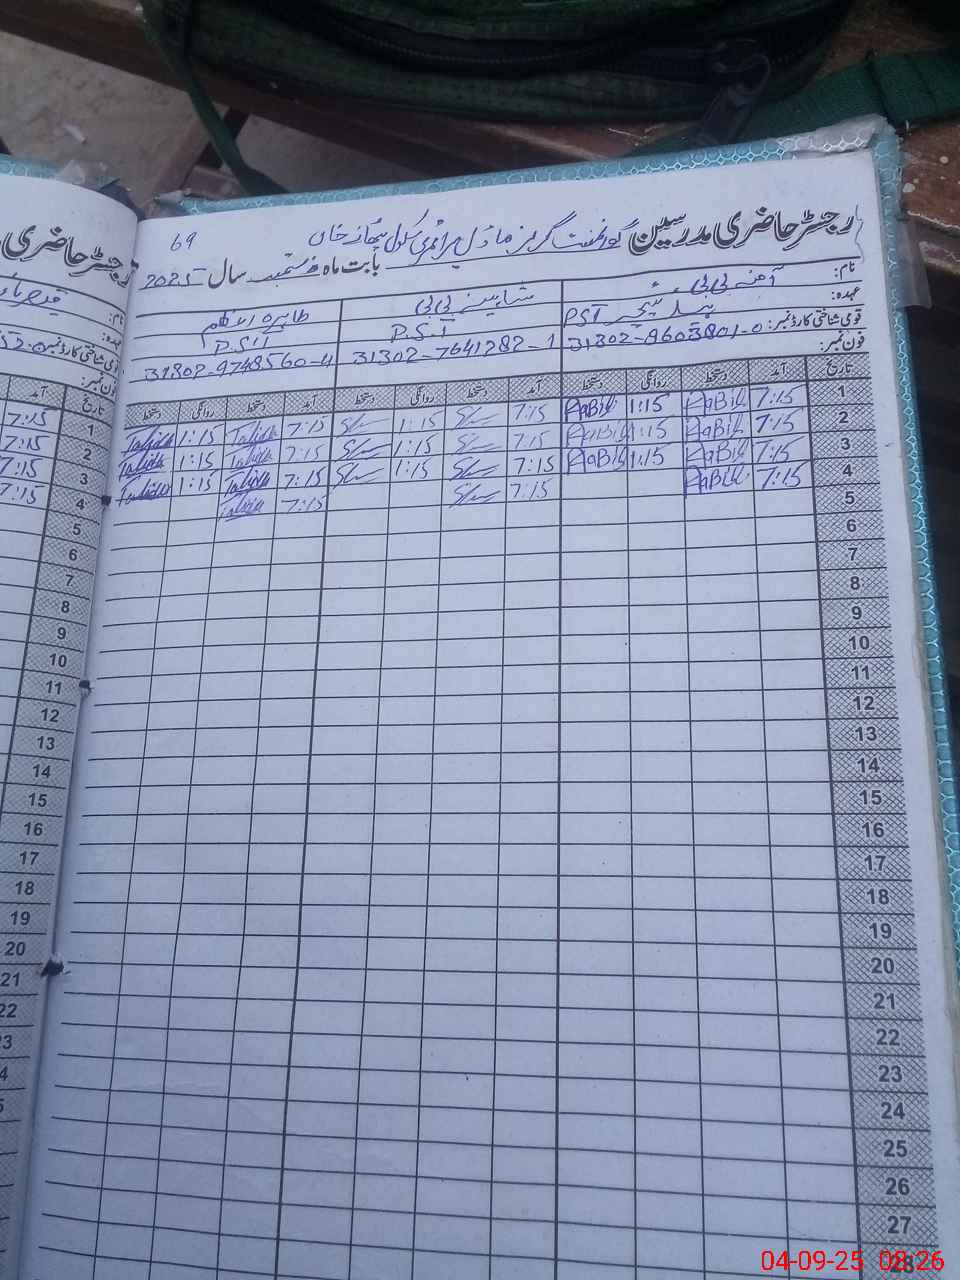 رجسٹر حاضری مدرسین گورنمنٹ گرلز ماڈل پرائمری سکول خان 69
بابت ماہ ستمبر سال 2025
نام: آمنہ بی بی شاہینہ بی بی طاہرہ اعظم
عہدہ: ہیڈ ٹیچر PST P.S.T P.S.T
قومی شناختی کارڈ نمبر: 31302-8603801-0 31302-7641282-1 31302-9748560-4
فون نمبر:
تاریخ آمد دستخط روانگی دستخط آمد دستخط روانگی دستخط آمد دستخط روانگی دستخط
1 7:15 RaBil 1:15 RaBil 7:15 1:15 7:15 Tahida 1:15 Tahida
2 7:15 RaBil 1:15 RaBil 7:15 1:15 7:15 Tahida 1:15 Tahida
3 7:15 RaBil 1:15 RaBil 7:15 1:15 7:15 Tahida 1:15 Tahida
4 7:15 RaBil 7:15 7:15 Tahida
5
6
7
8
9
10
11
12
13
14
15
16
17
18
19
20
21
22
23
24
25
26
27
28
رجسٹر حاضری
نام:
عہدہ:
قومی شناختی کارڈ نمبر
فون نمبر:
تاریخ آمد
1 7:15
2 7:15
3 7:15
4 7:15
5
6
7
8
9
10
11
12
13
14
15
16
17
18
19
20
21
22
04-09-25 08:26